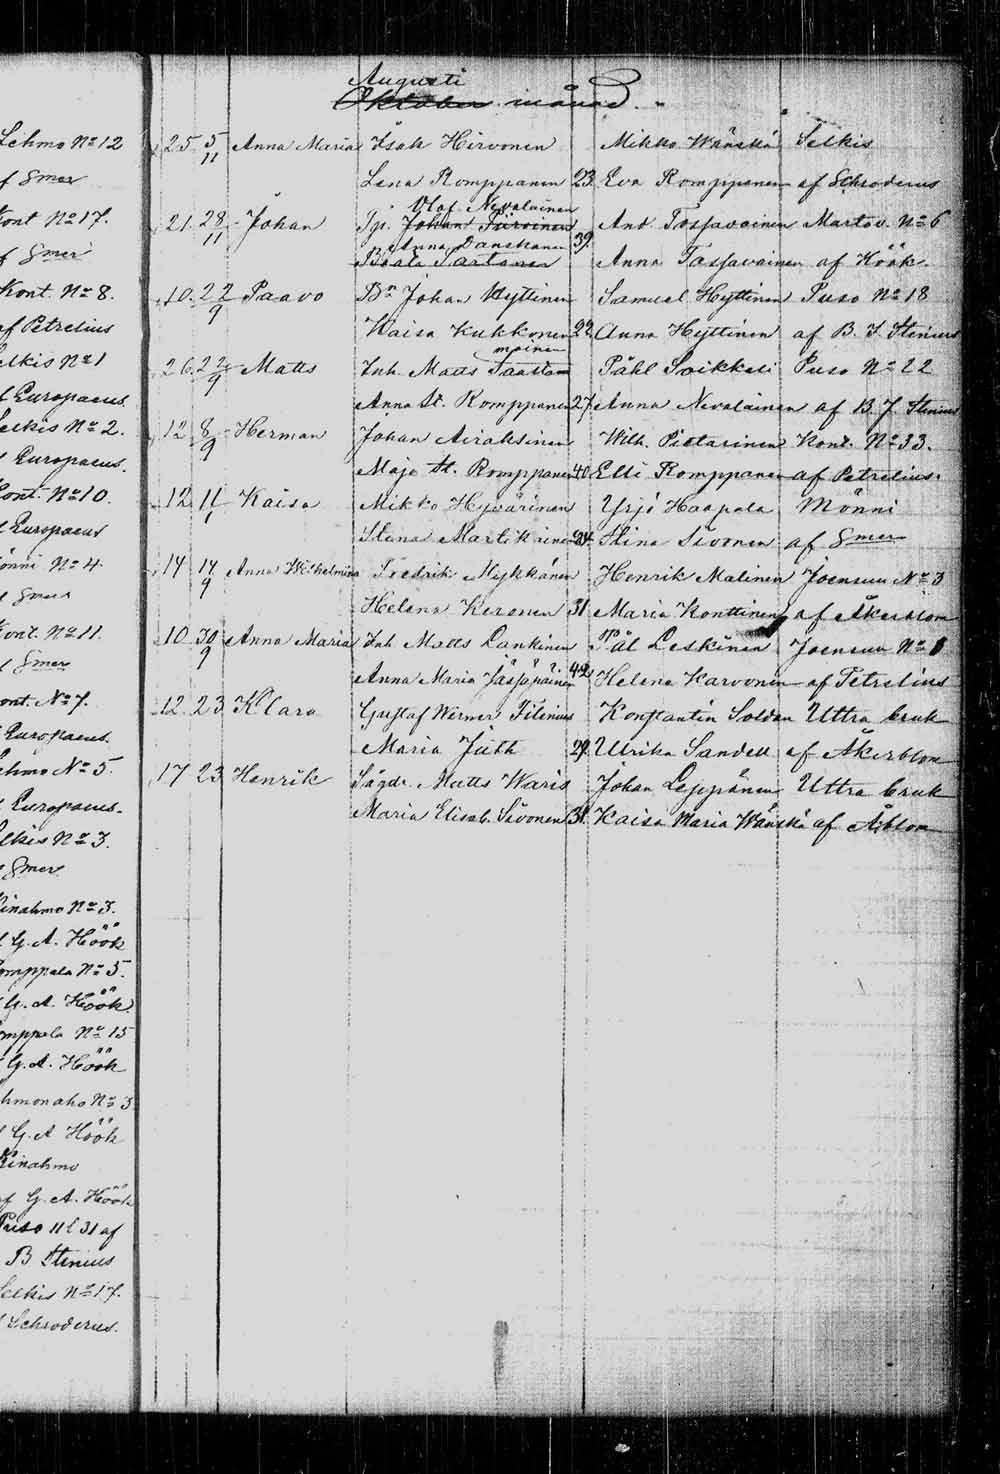 Augusti
Oktober månad.
25 5/11 Anna Maria Isak Hirvonen Mikko Wänskä Selkis
Lena Romppanen 23 Eva Romppanen af Schroderus
Olof Nevalainen
21 28/11 Johan Johan And. Tossavainen Martov. No 6
Anna Danskanen 39
Beata Tartanen Anna Tossavainen af Höök
10 22/9 Paavo Johan Hyttinen Samuel Hyttinen Puso No 18
Kaisa Kukkonen 22 Anna Hyttinen af B. J. Stenius
26 22/9 Matts Inh. Matts Påhl Soikkeli Puso No 22
Anna St. Romppanen 27 Anna Nevalainen af B. J. Stenius
12 8/9 Herman Johan Airaksinen Wilh. Pietarinen Kont. No 33.
Maja St. Romppanen 40 Elli Romppanen af Petrelius.
12 11 Kaisa Mikko Hyvärinen Yrjö Haapala Mönni
Stina Martikainen 24 Stina Sivonen af Smer
14 14/9 Anna Wilhelmina Fredrik Mykkänen Henrik Malinen Joensuu No 3
Helena Keronen 31 Maria Konttinen af Åkerblom
10 30/9 Anna Maria Inh Matts Lankinen Pål Leskinen Joensuu No
Anna Maria 42 Helena Karvonen af Petrelius
12 23 Klara Gustaf Werner Filenius Konstantin Soldan Uttra bruk
Maria Jäth 29 Ulrika Sandell af Åkerblom
17 23 Henrik Sågdr. Matts Waris Johan Leppänen Uttra bruk
Maria Elisab. Sivonen 31 Kaisa Maria Wänskä af Åblom
Lehmo No 12
f Smer
Kont No 17.
f Smer
Kont. No 8.
af Petrelius
elkis No 1
f Europaeus.
elkis No 2.
Europaeus.
Kont. No 10.
Europaeus
önni No 4.
f Smer
Kont. No 11.
f Smer
ont. No 7.
Europaeus.
ehmo No 5.
Europaeus.
elkis No 3.
Smer
inahmo No 3.
G. A. Höök
omppala No 5.
G. A. Höök
mppala No 15
G. A. Höök
hmonaho No 3
G. A. Höök
Kinahmo
af G. A. Höök
Puso No 31 af
B Stenius
Selkis No 17.
Schroderus.